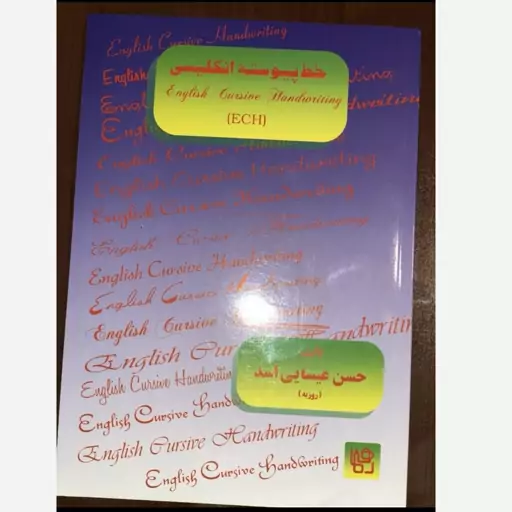 English Cursive Handwriting
English
خط پیوسته انگلیسی
English Cursive Handwriting
(ECH)
English Cursive Handwriting
English Cursive Handwriting
English Cursive Handwriting
English Cursive Handwriting
English Cursive Handwriting
English Cursive Handwriting
English Cursive Handwriting
English Cur
andwritin
حسن عیسایی اسد
(روزبه)
English Cursive Handwritin
English Cursive Hand
English Cursive Handwriting
English Cursive Handwriting